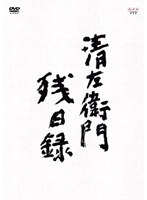 DVD
清左衛門
残日録